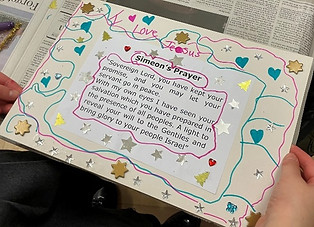 I Love Jesus
Simeon's Prayer
"Sovereign Lord, you have kept your
promise, and you may let your
servant go in peace.
With my own eyes I have seen your
salvation which you have prepared in
the presence of all peoples. A light to
reveal your will to the Gentiles and
bring glory to your people Israel"